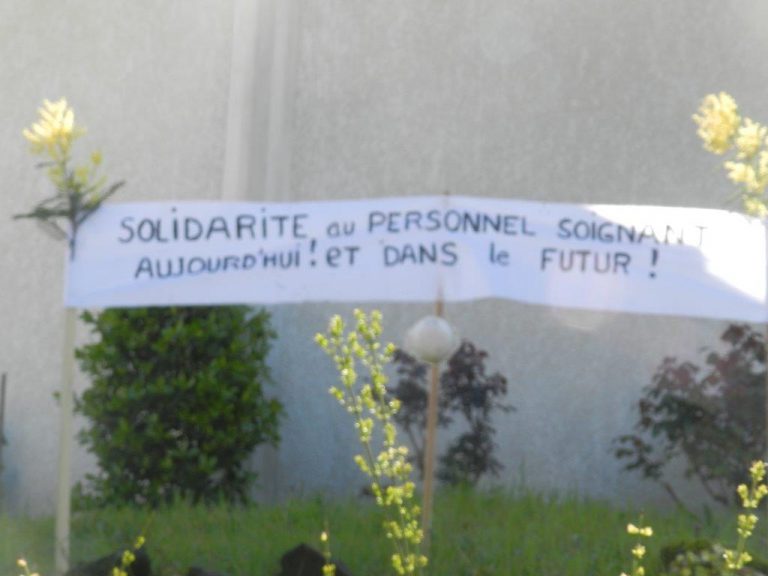 SOLiDARiTE au PERSONNEL SOiGNANT
AUJOURD'HUi ! eT DANS le FUTUR !